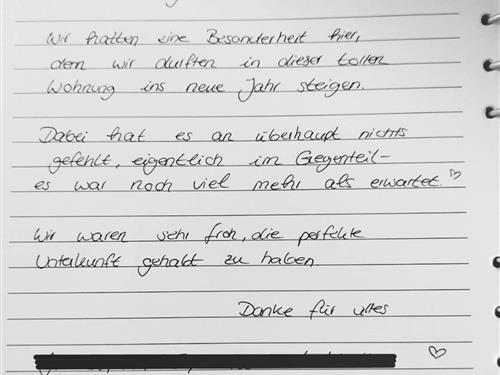 Wir hatten eine Besonderheit hier,
denn wir durften in dieser tollen
Wohnung ins neue Jahr steigen.
Dabei hat es an überhaupt nichts
gefehlt, eigentlich im Gegenteil-
es war noch viel mehr als erwartet ♡
Wir waren sehr froh, die perfekte
Unterkunft gehabt zu haben.
Danke für alles
♡